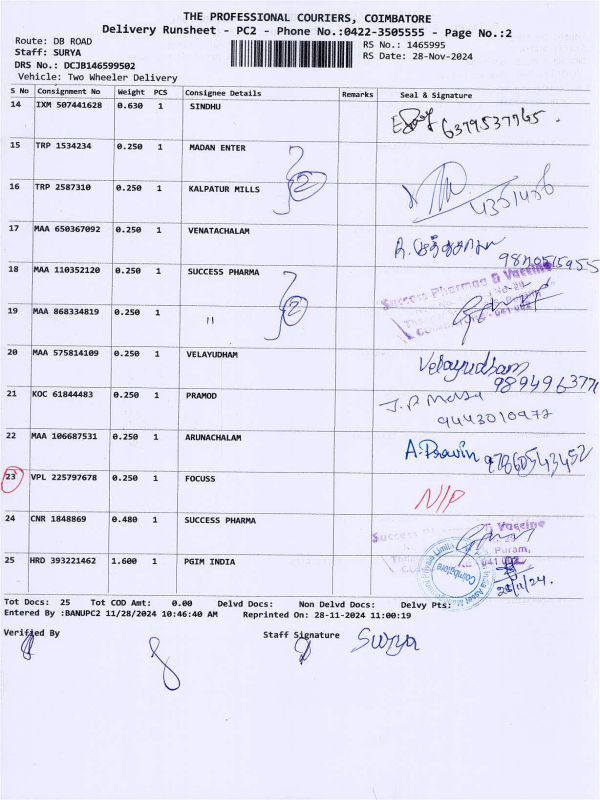 THE PROFESSIONAL COURIERS, COIMBATORE
Delivery Runsheet - PC2 - Phone No.:0422-3505555 - Page No.:2
Route: DB ROAD
Staff: SURYA
DRS No.: DCJB146599502
Vehicle: Two Wheeler Delivery
RS No.: 1465995
RS Date: 28-Nov-2024
S No Consignment No Weight PCS Consignee Details Remarks Seal & Signature
14 IXM 507441628 0.630 1 SINDHU 6379537765.
15 TRP 1534234 0.250 1 MADAN ENTER
2
16 TRP 2587310 0.250 1 KALPATUR MILLS 4351456
17 MAA 650367092 0.250 1 VENATACHALAM
18 MAA 110352120 0.250 1 SUCCESS PHARMA Success Pharma & Vaccine
2
19 MAA 868334819 0.250 1 "
20 MAA 575814109 0.250 1 VELAYUDHAM Velayudham
21 KOC 61844483 0.250 1 PRAMOD
9443010972
22 MAA 106687531 0.250 1 ARUNACHALAM A.Pravin
23 VPL 225797678 0.250 1 FOCUSS N/P
24 CNR 1848869 0.480 1 SUCCESS PHARMA Success Pharma & Vaccine
25 HRD 393221462 1.600 1 PGIM INDIA
Coimbatore
28/11/24.
Tot Docs: 25 Tot COD Amt: 0.00 Delvd Docs: Non Delvd Docs: Delvy Pts:
Entered By :BANUPC2 11/28/2024 10:46:40 AM Reprinted On: 28-11-2024 11:00:19
Verified By Staff Signature Surya